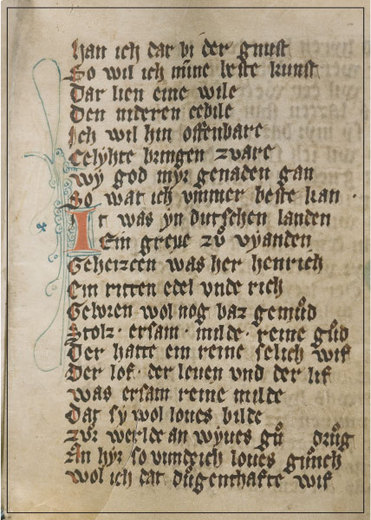 Han ich dar bi der gunst
So wil ich mine beste kunst
Dar lien eine wile
Den nideren
Ich wil hin offenbare
bringen zware
Wy god myr genaden gan
So war ich ymmer beste kan
It was yn dutschen landen
Ein greue zů vyanden
Geheizcen was her henrich
Ein ritten edel vnde rich
Geboren wol nog baz gemůd
Stolz · ersam · milde · reine gůd
Der hatte ein reine selich wif
Der lof · der leuen vnd der lif
was ersam reine milde
Daz sy wol loues bilde
werlde an wyues
An hyr so vundich loues
wol ich dat důgenthafte wif